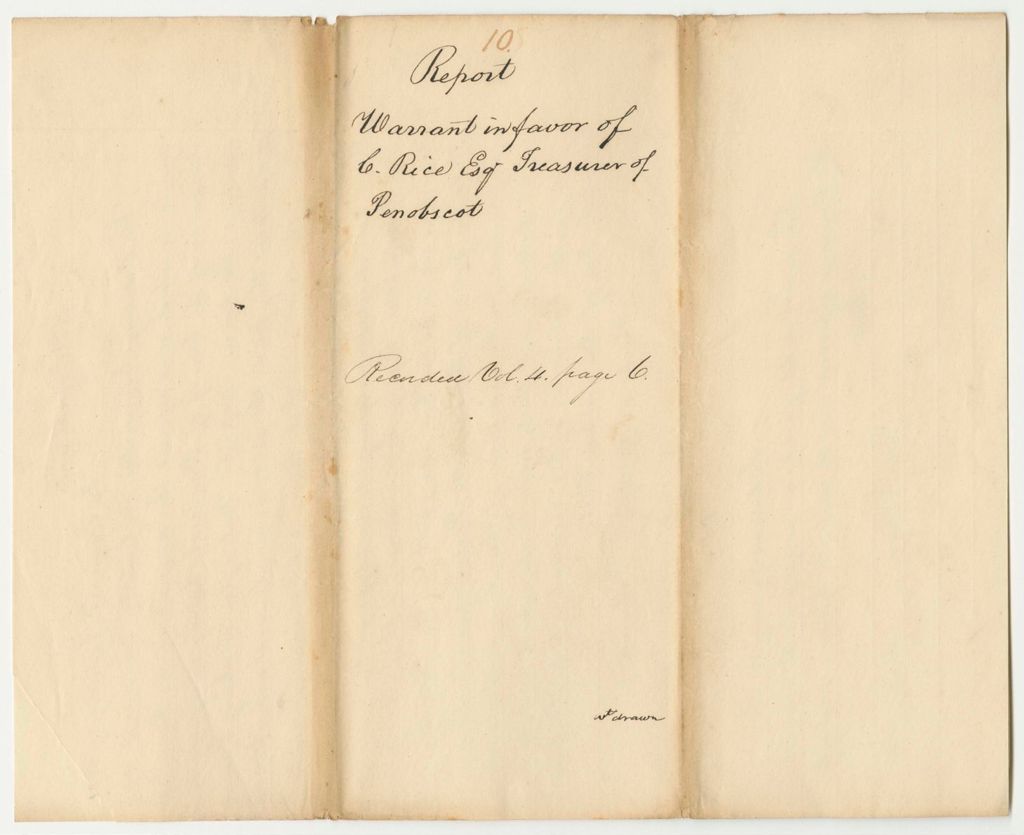 10.
Report
Warrant in favor of
C. Rice Esqr Treasurer of
Penobscot
Recorded Vol. 4. page 6.
wt drawn